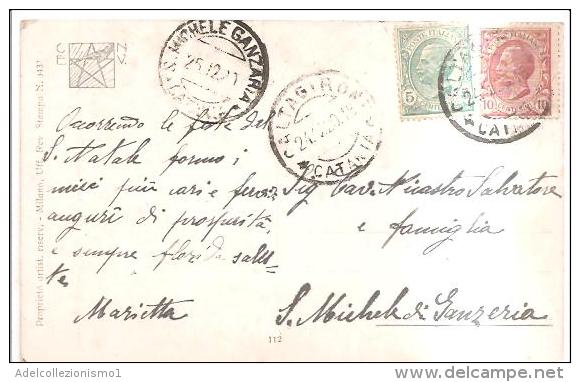 C A N
E V.
S. MICHELE GANZARIA
25.12.20
CALTAGIRONE
CATANIA
POSTE ITALIANE
5
10 10
CALTAGIRONE
CATANIA
Proprietà artist. riserv. - Milano, Uff. Rev. Stampa N.
Occorrendo le feste del
S. Natale formo i
miei più cari e fervidi
auguri di prosperità
e sempre florida salu-
te
Marietta
Sig. Cav. Nicastro Salvatore
e famiglia
S. Michele di Ganzeria
112
Adelcollezionismo1
delcampe.net